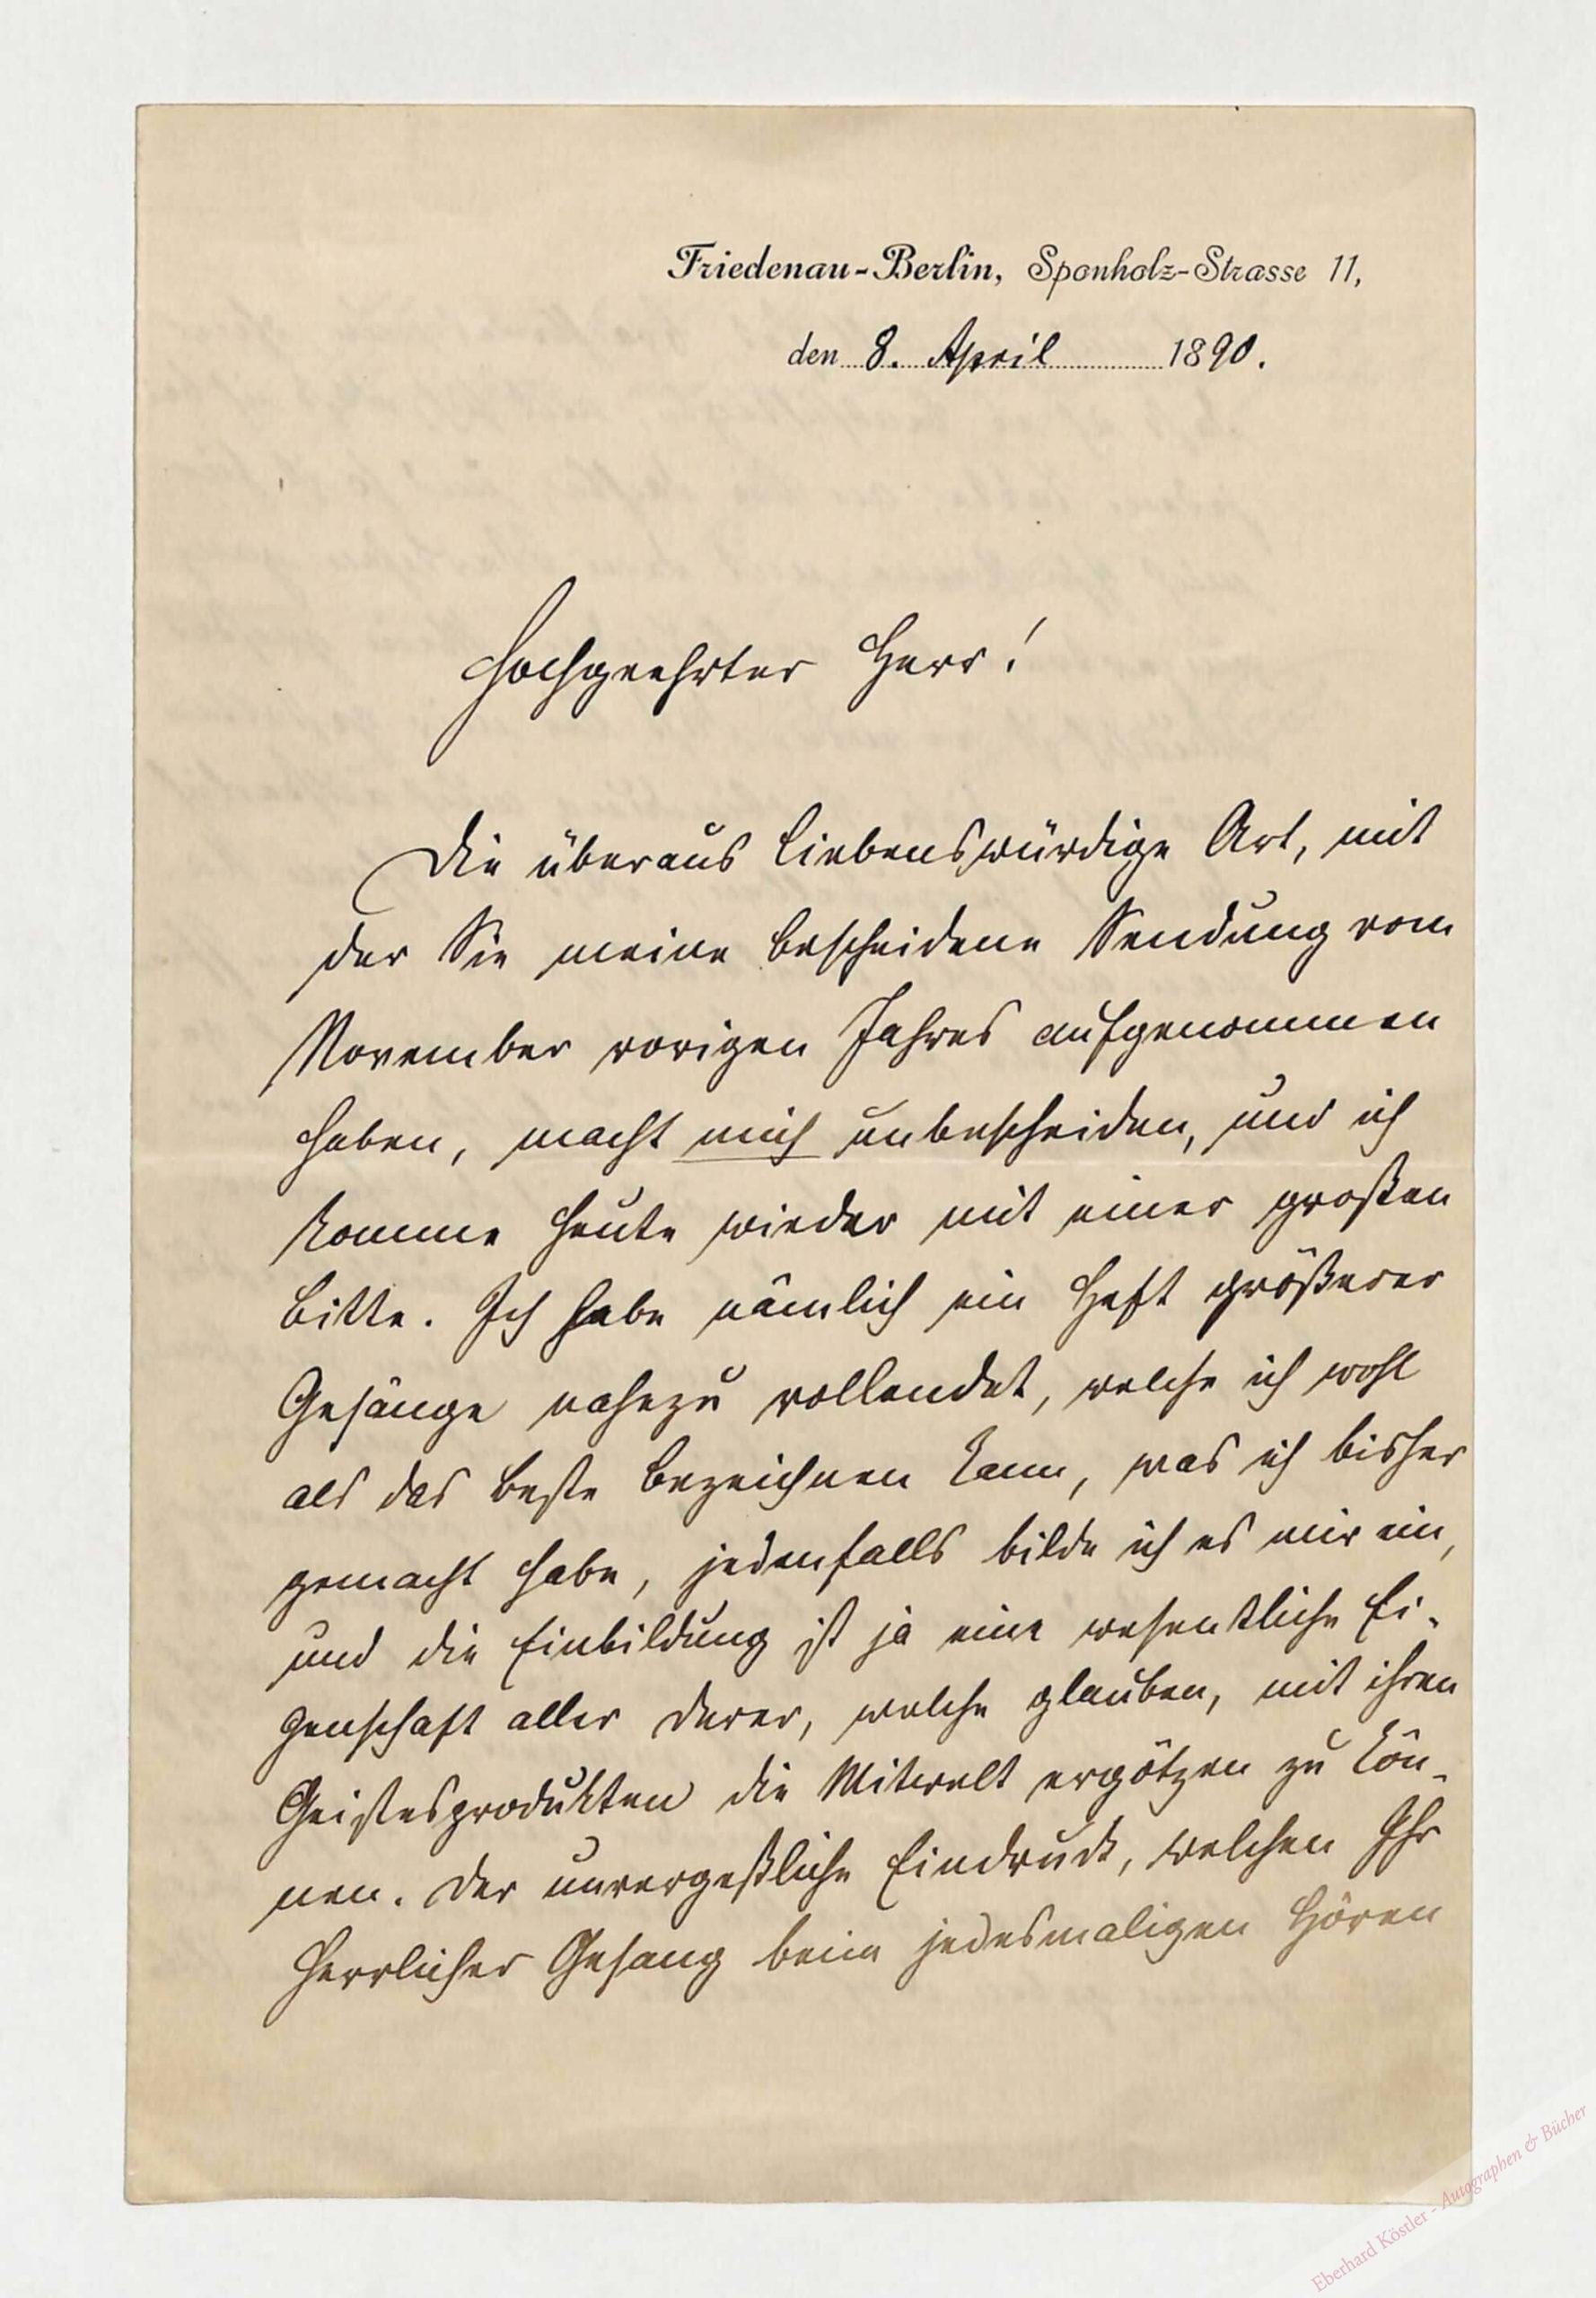 Friedenau-Berlin, Sponholz-Strasse 11,
den 8. April 1890.
Hochgeehrter Herr!
Die überaus liebenswürdige Art, mit
der Sie meine bescheidene Sendung vom
November vorigen Jahres aufgenommen
haben, macht mich unbescheiden, und ich
komme heute wieder mit einer großen
Bitte. Ich habe nämlich ein Heft größerer
Gesänge nahezu vollendet, welche ich wohl
als das Beste bezeichnen kann, was ich bisher
gemacht habe, jedenfalls bilde ich es mir ein,
und die Einbildung ist ja eine wesentliche Ei-
genschaft aller derer, welche glauben, mit ihren
Geistesprodukten die Mitwelt ergötzen zu kön-
nen. Der unvergeßliche Eindruck, welchen Ihr
herrlicher Gesang beim jedesmaligen Hören
Eberhard Köstler - Autographen & Bücher